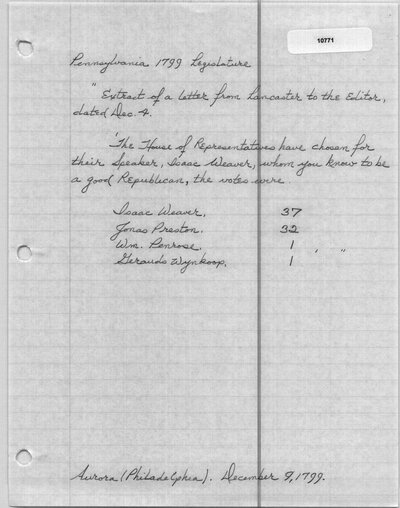 10771
Pennsylvania 1799 Legislature
"Extract of a letter from Lancaster to the Editor,
dated Dec. 4.
'The House of Representatives have chosen for
their Speaker, Isaac Weaver, whom you know to be
a good Republican, the votes were.
Isaac Weaver. 37
Jonas Preston. 32
Wm. Penrose. 1
Gerardus Wynkoop. 1 ' "
Aurora (Philadelphia). December 9, 1799.